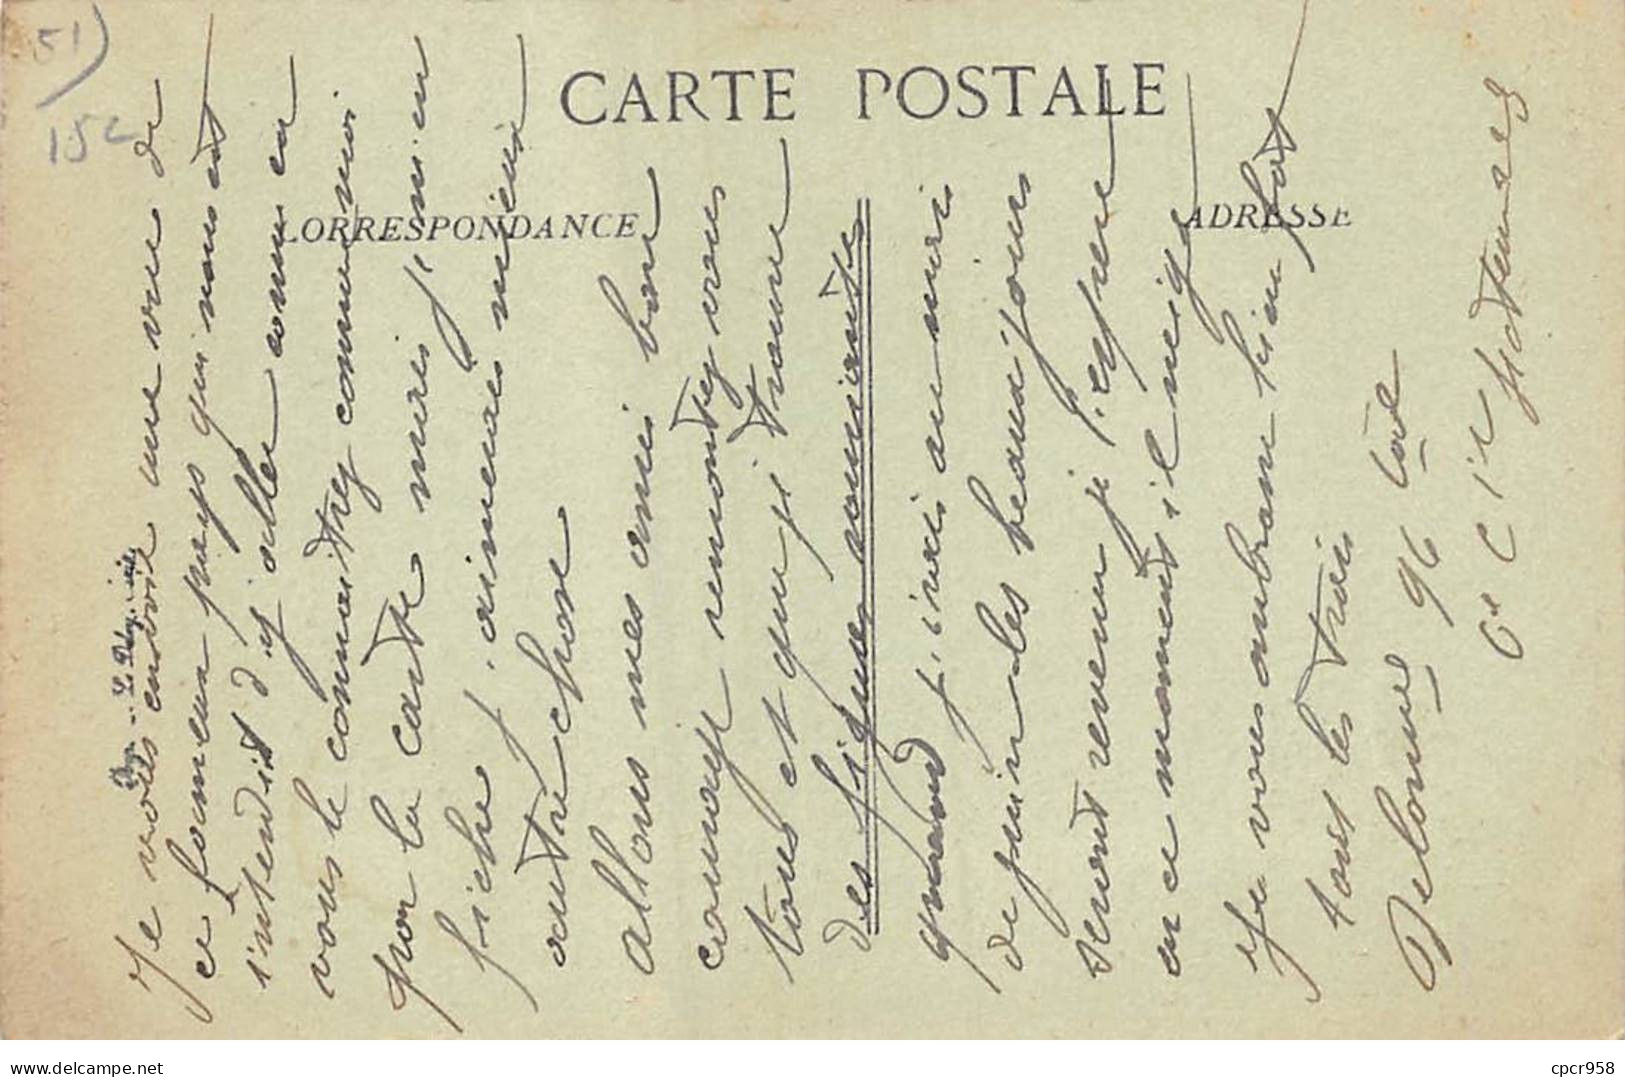 51)
15c
CARTE POSTALE
CORRESPONDANCE
ADRESSE
Je vous envoie une vue de
ce fameux pays qui nous est
intendit d'y aller comme en
vous le connaitrez comme moi
par la carte mais j'm'en
fiche j'aimerais mieux
autre chose
allons mes amis bon
courage remontez vous
tous et qui trouve
des figues souriante
quand j'irai au mois
de juin les beaux jours
seront revenu j'espere
en ce moment il neige
Je vous embrasse bien fort
tous les trois
Delorme 96
6e Cie
delcampe.net
cpcr958